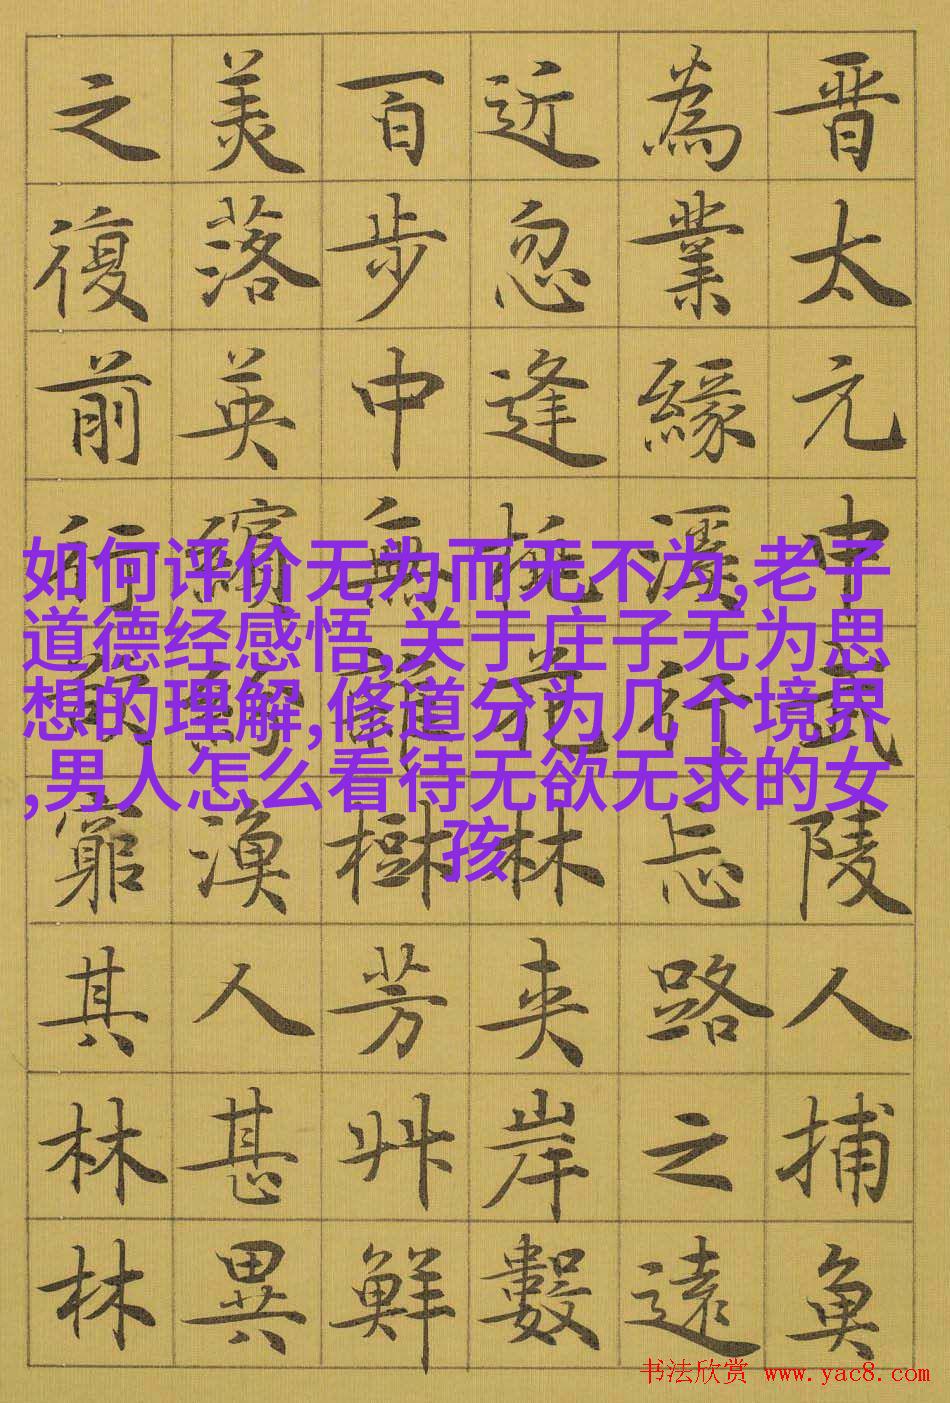 晋太元中武陵人捕魚
為業緣溪行忘路之遠
近忽逢桃花林夾岸數
百步中無雜樹芳艸鮮
美落英繽紛漁人甚異
之復前行欲窮其林林
如何评价无为而无不为,老子
道德经感悟,关于庄子无为思
想的理解,修道分为几个境界
,男人怎么看待无欲无求的女
孩
书法欣赏 www.yac8.com